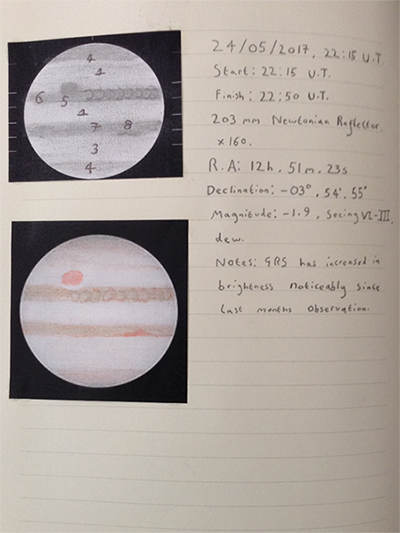 4
4
6 5
4
7 8
3
4
24/05/2017, 22:15 U.T
Start: 22:15 U.T.
Finish: 22:50 U.T.
203 mm Newtonian Reflector,
x160.
R.A: 12h, 51m, 23s
Declination: -03°, 54', 55"
Magnitude: -1.9, Seeing VI-III,
dew.
Notes: GRS has increased in
brightness noticeably since
last months observation.